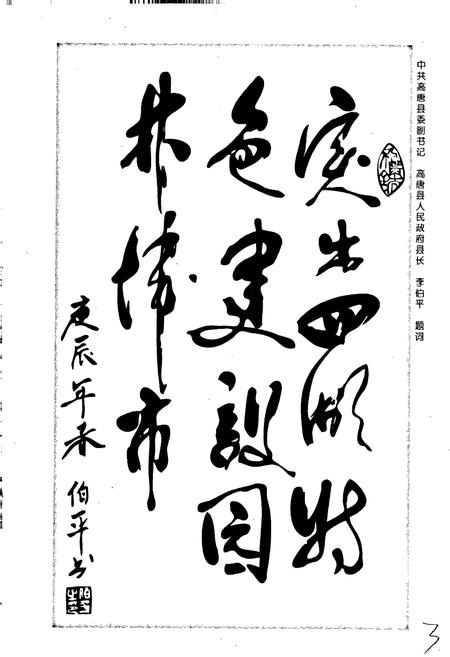 中共高唐县委副书记 高唐县人民政府县长 李伯平 题词
突出四湖特
色建設园
林城市
庚辰年春 伯平书
3